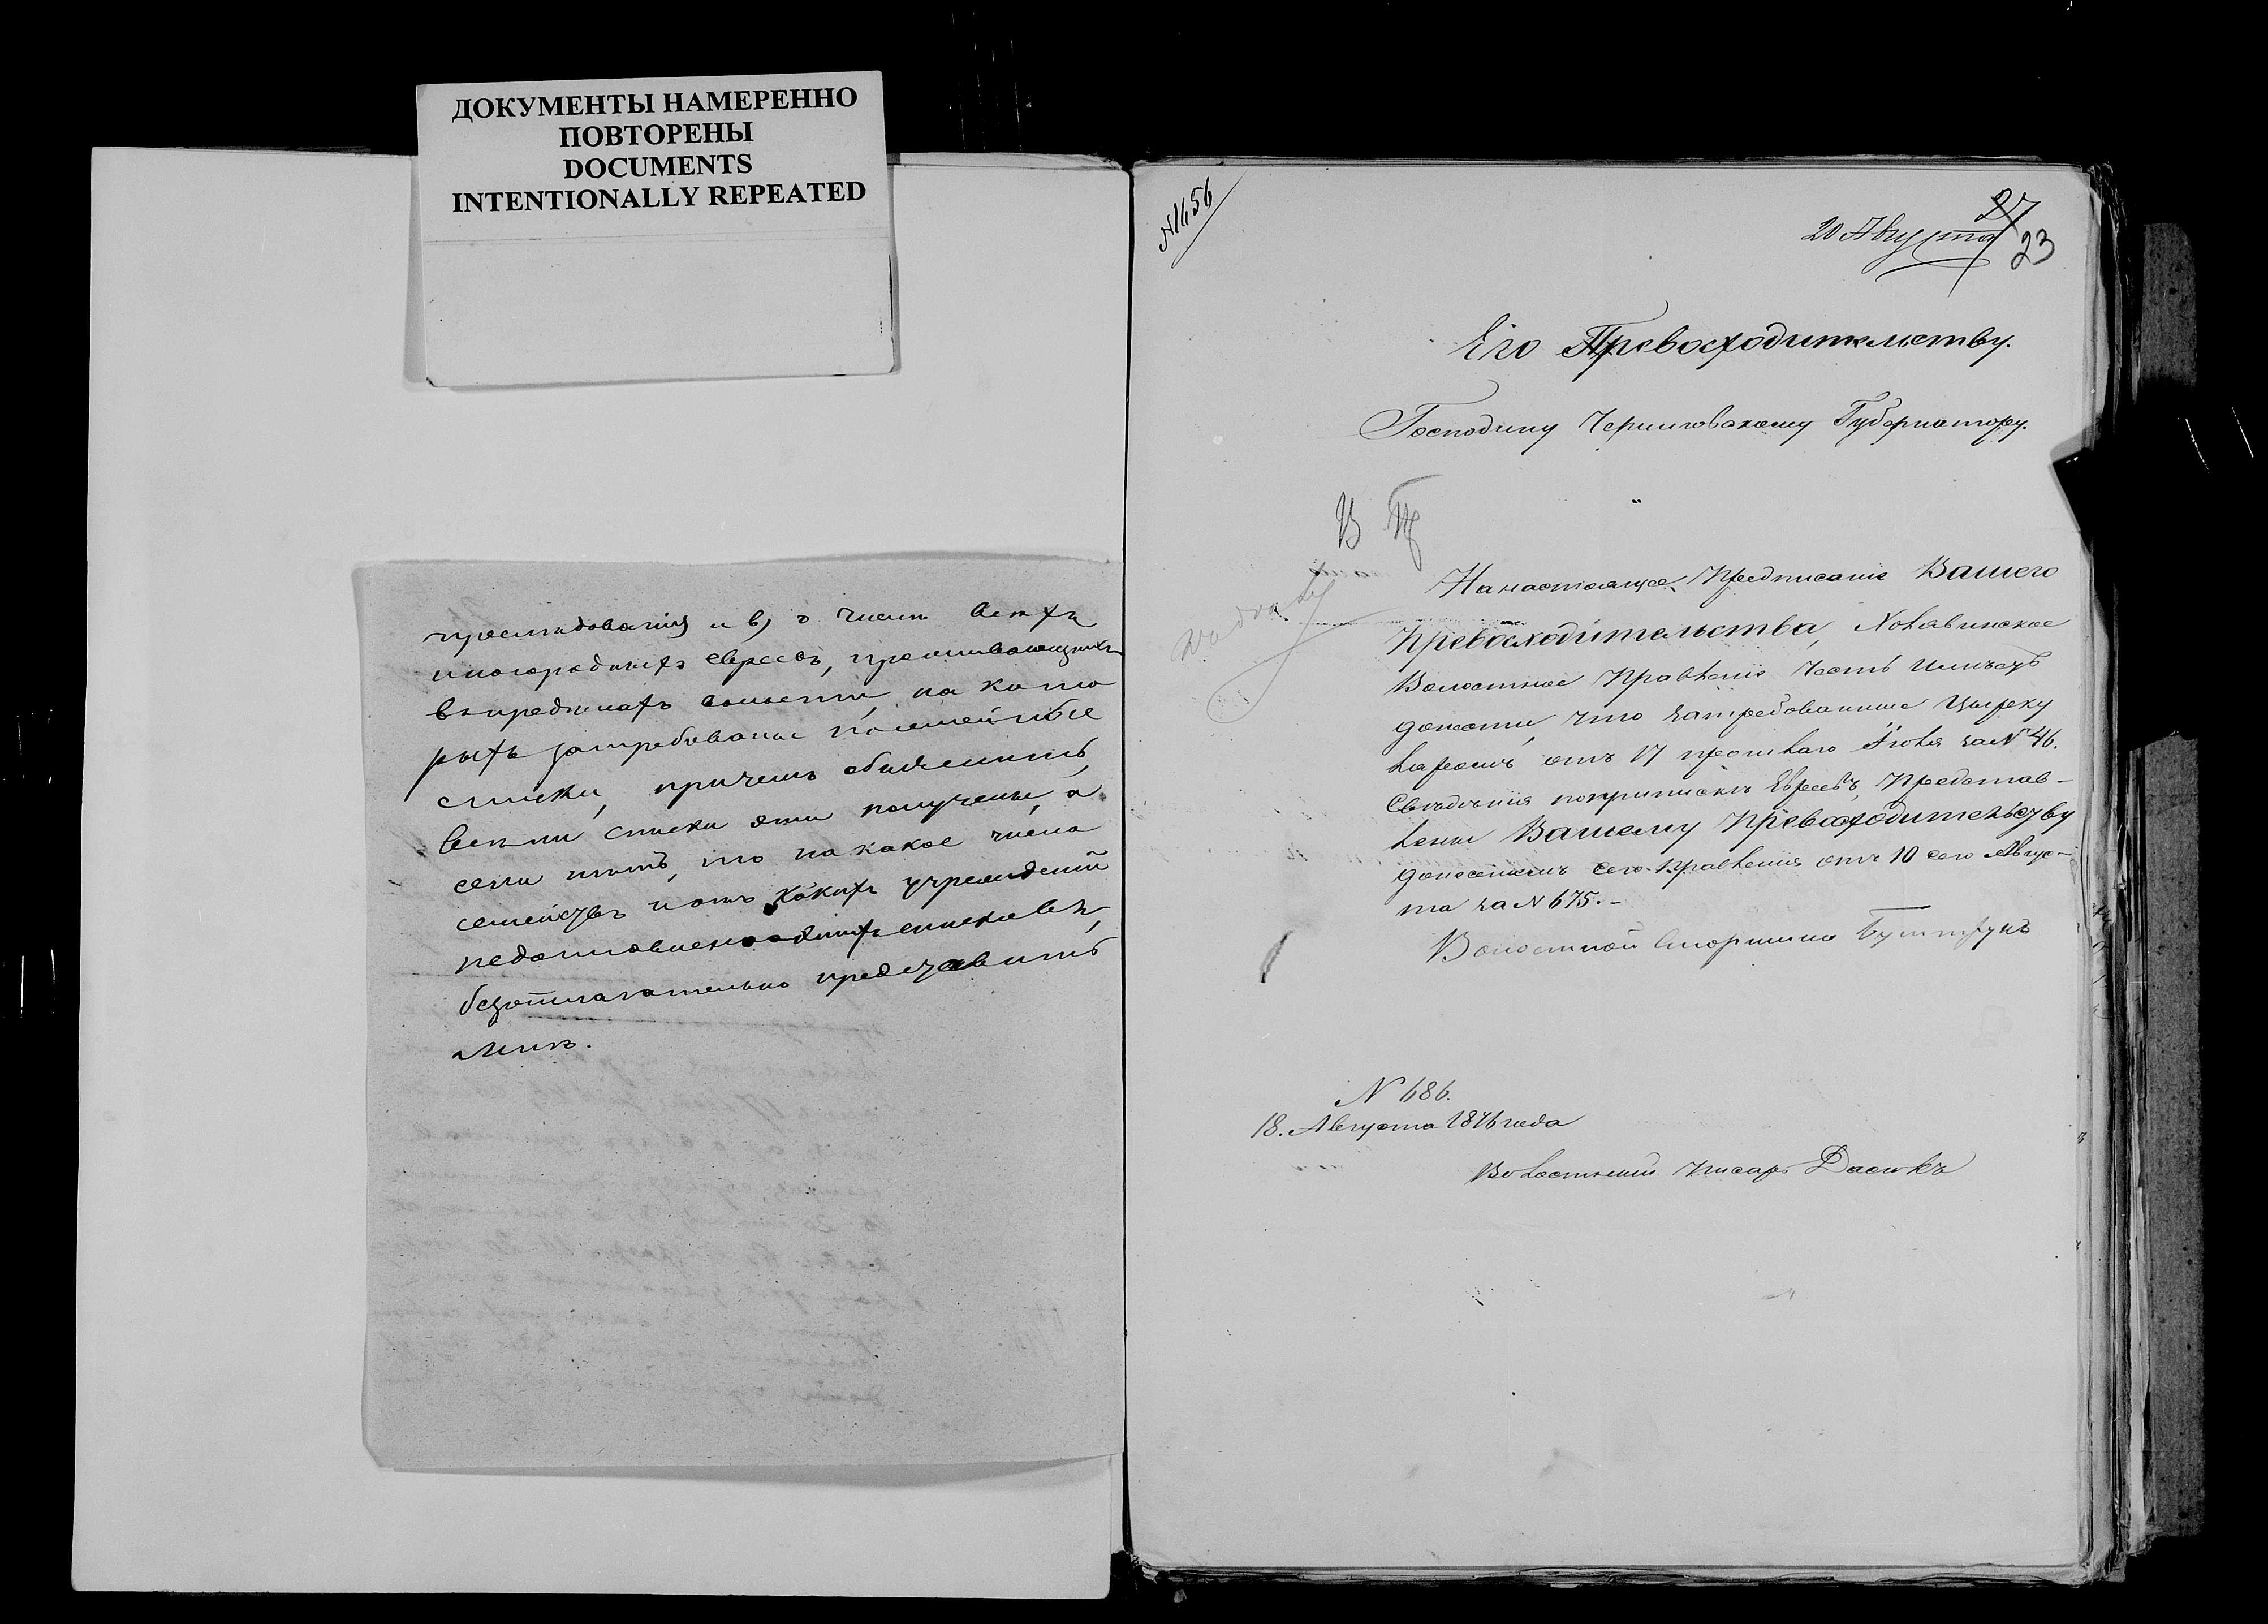 ДОКУМЕНТЫ НАМЕРЕННО
ПОВТОРЕНЫ
DOCUMENTS
INTENTIONALLY REPEATED
и в) о числе всехъ
иногородныхъ евреевъ, проживающихъ
въ пределахъ волости, на кото
рыхъ затребованы посемейные
списки, причемъ объяснить,
все ли списки эти получены, а
если нетъ, то на какое число
семействъ и отъ какихъ учреждений
не доставлено
безотлагательно представить
мне.
20 Августа
27
23
Его Превосходительству.
Господину Черниговскому Губернатору.
На настоящее Предписание Вашего
Превосходительства,
Волостное Правленіе Честь имеетъ
донести, что затребованные Цырку
ляромъ отъ 17 прошлаго Іюля за № 46.
Сведенія по приписке Евреевъ, Представ-
лены Вашему Превосходительству
донесеніемъ сего Правленія отъ 10 сего Авгус-
та за № 675.-
Волостной Старшина
N 686.
18. Августа 1876 года
Волостной Писарь